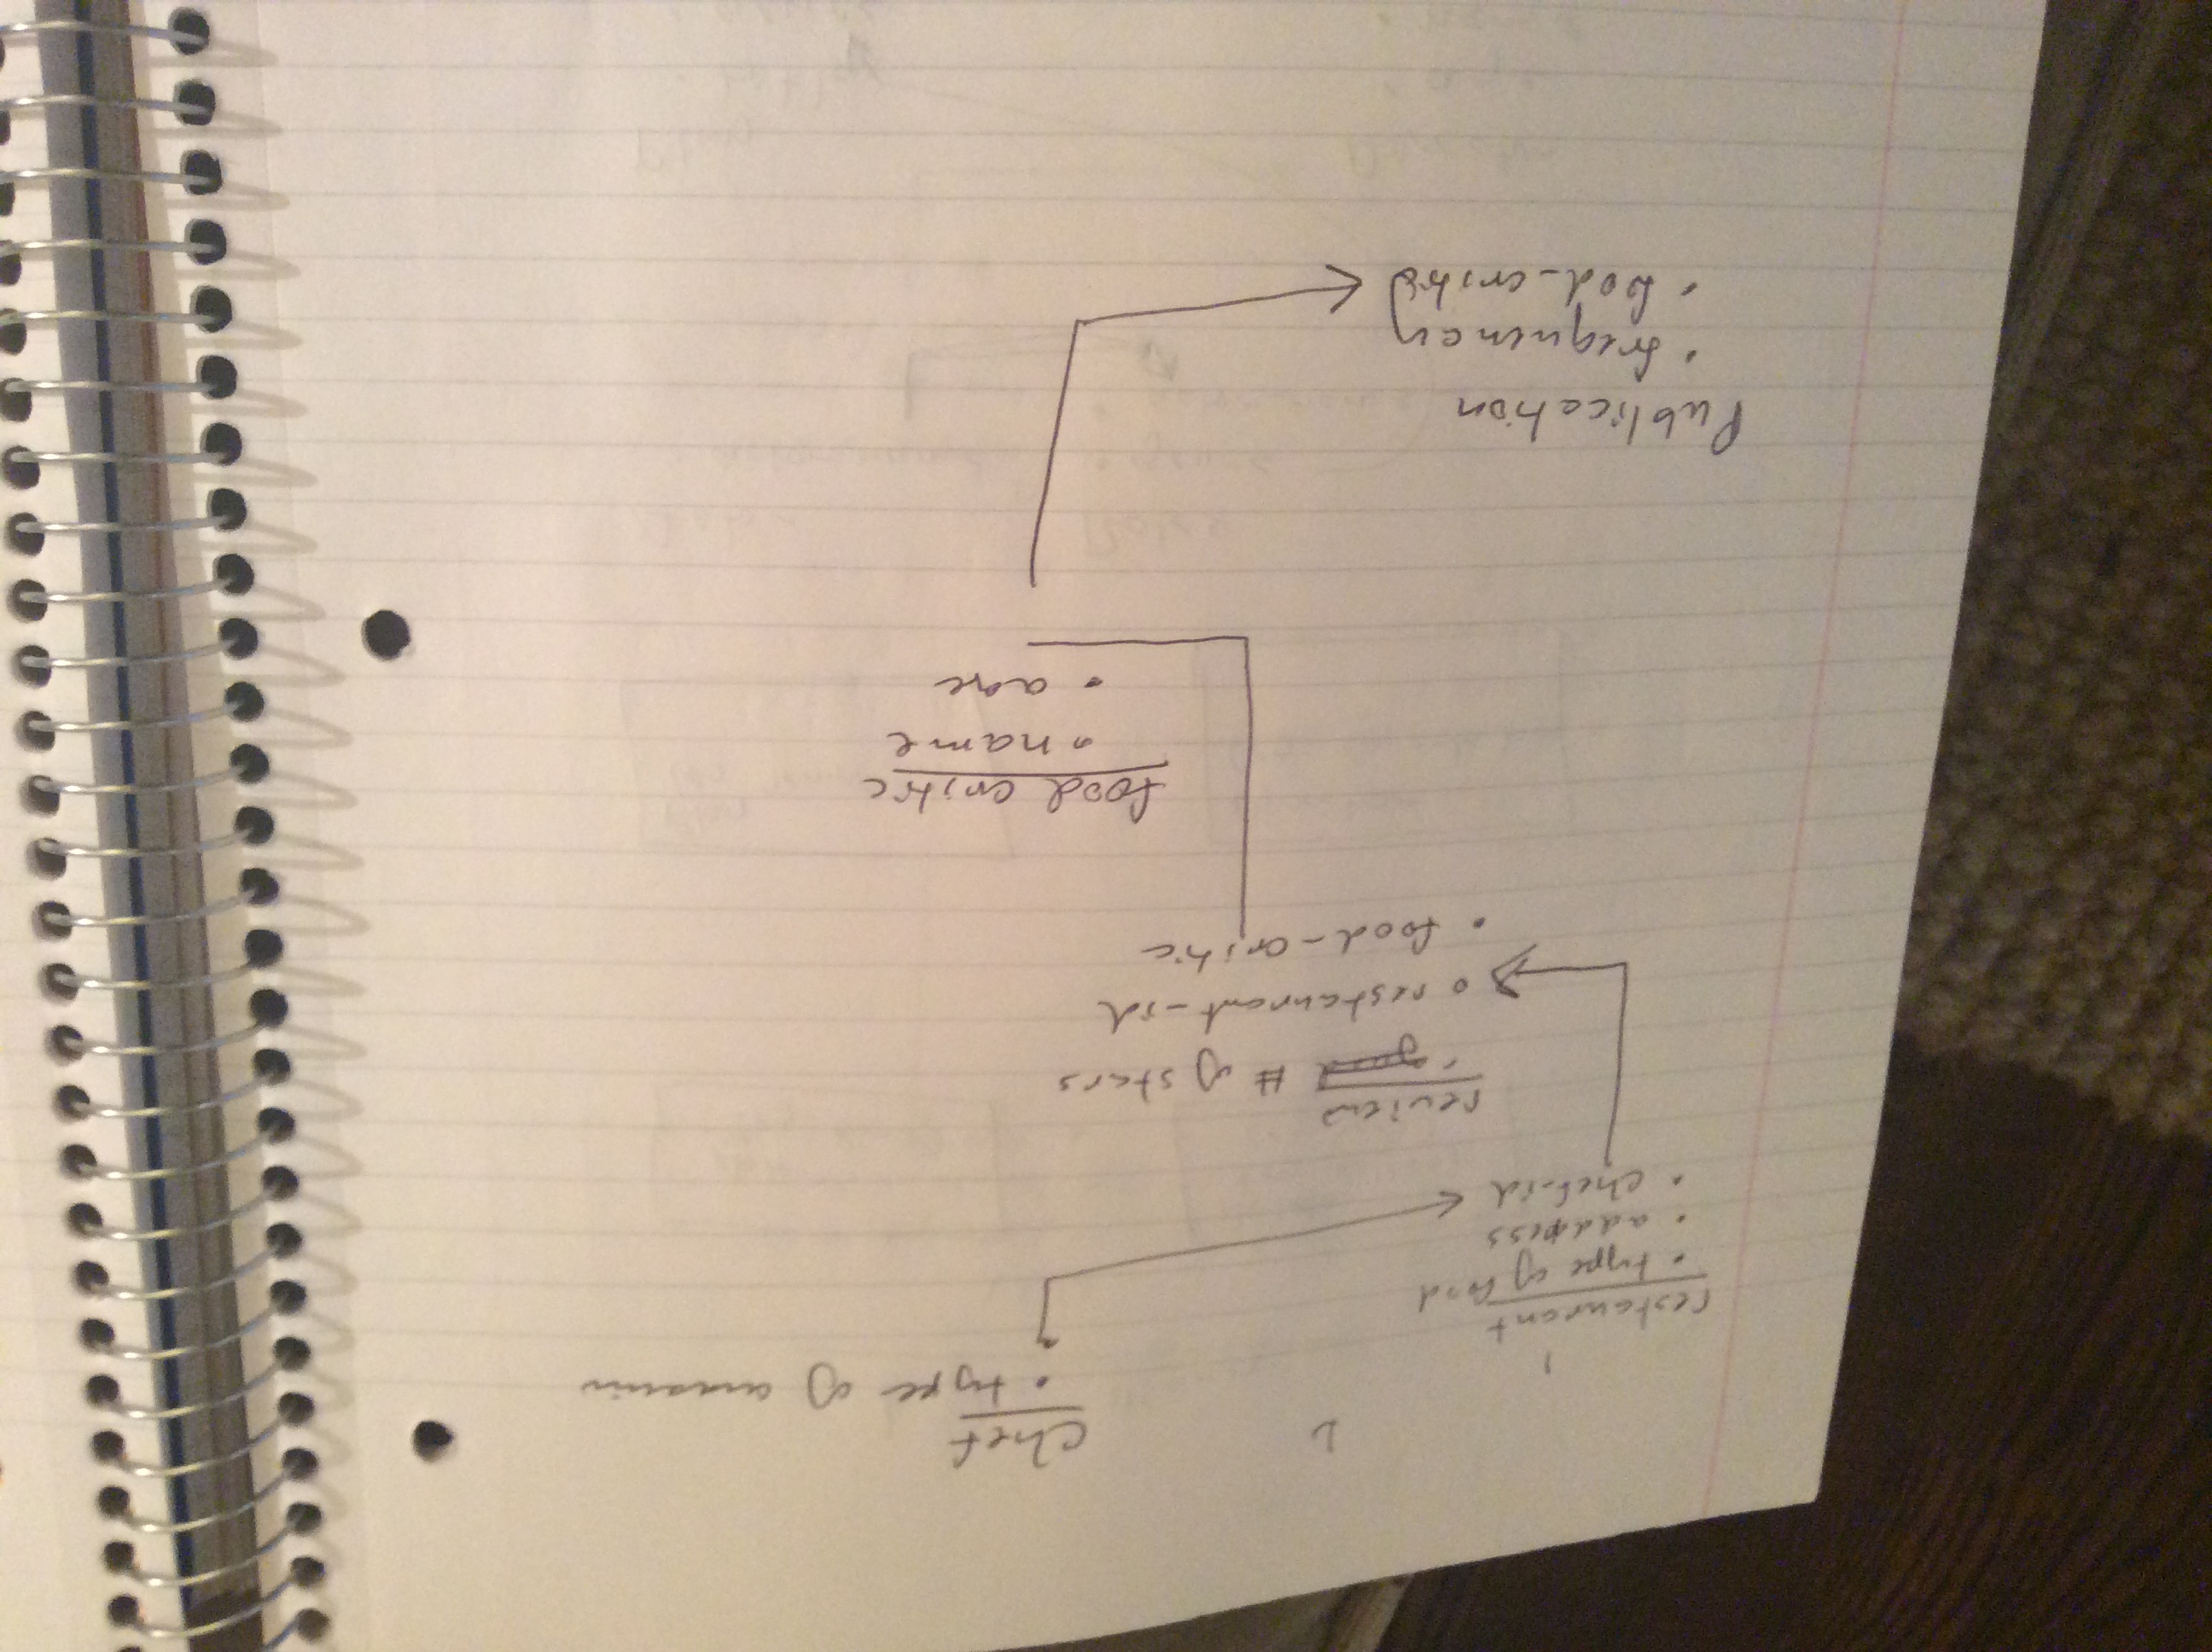 chef
• type of
restaurant
• type of food
• address
• chef-id
review
• # of stars
• restaurant-id
• food-critic
food critic
• name
• age
Publication
• frequency
• food_critic